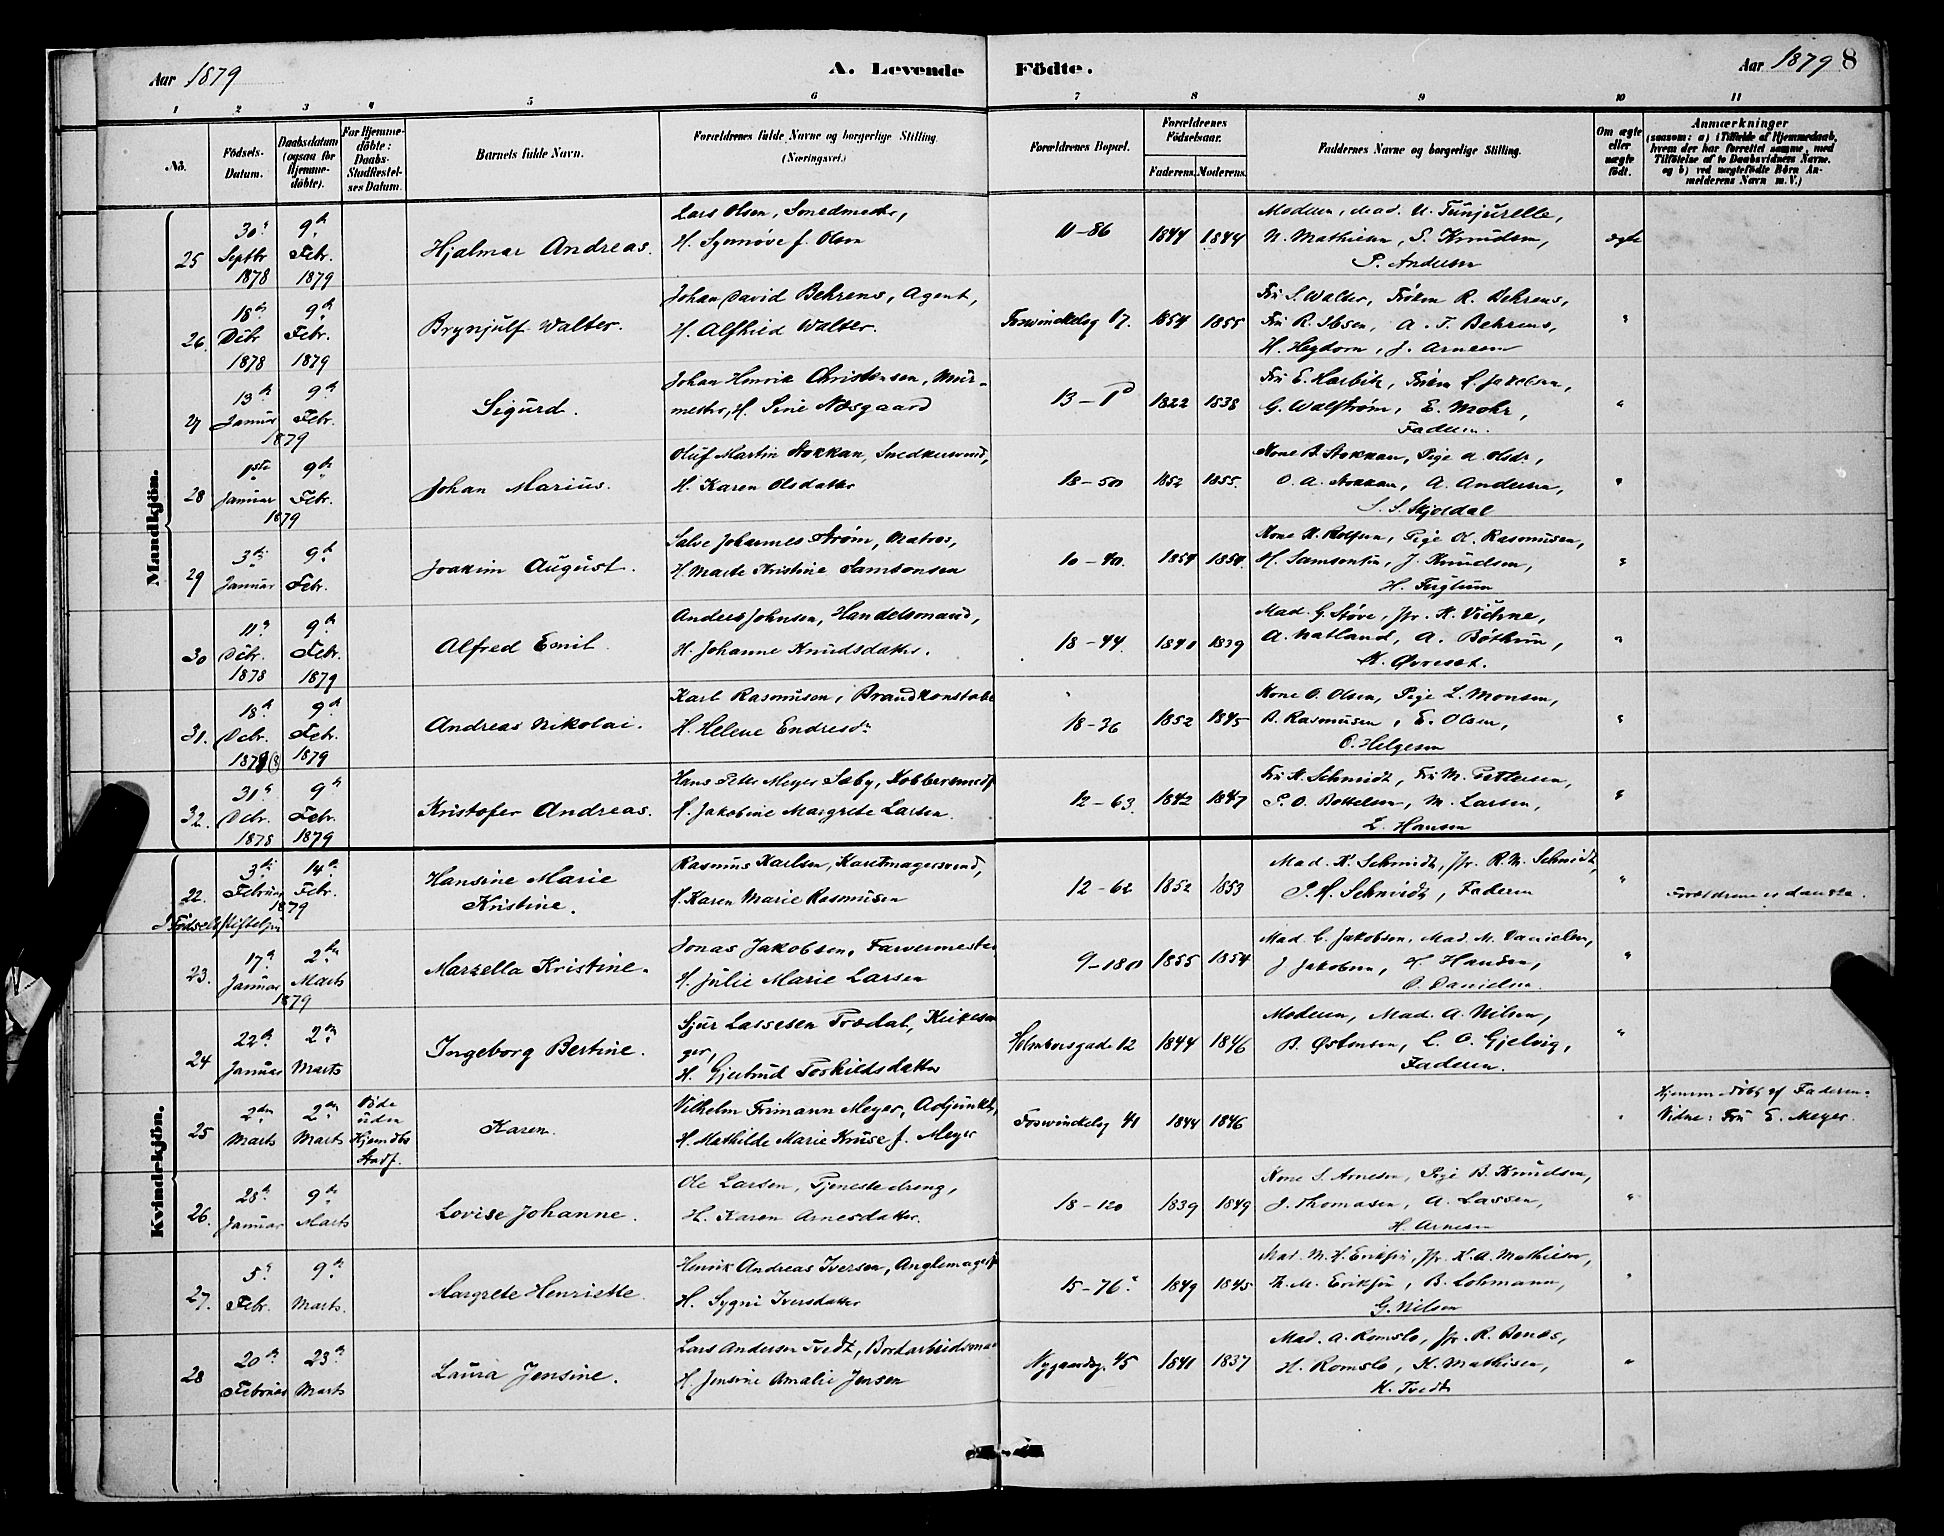 Aar 1879
A. Levende Födte.
Aar 1879
8
1 2 3 4 5 6 7 8 9 10 11
No.
Födsels-Datum.
Daabsdatum (ogsaa for Hjemme-döbte).
For Hjemme-döbte: Daabs-Stadfestel-ses Datum.
Barnets fulde Navn.
Forældrenes fulde Navne og borgerlige Stilling. (Næringsvei.)
Forældrenes Bopæl.
Forældrenes Födselsaar.
Faderens. Moderens.
Faddernes Navne og borgerlige Stilling.
Om ægte eller uægte födt.
Anmærkninger
(saasom: a) i Tilfælde af Hjemmedaab,
hvem der har forrettet samme, med
Tilföielse af to Daabsvidners Navne.
og b) ved uægtefödte Börn An-
melderens Navn m. V.)
Mandkjön.
25 30 Septbr 1878 9 Febr. 1879 Hjalmar Andreas.
Lars Olsen, Smedmester,
H. Synnøve f. Olsen
11-86 1844 1844
Moderen, Mad.
N. Mathiesen, S. Knudsen,
P. Andersen
ægte
26. 18 Dcbr 1878 9 Febr. 1879 Brynjulf Walter.
Johan David Behrens, Agent,
H. Alfhild Walter.
Foswinckelsg 17. 1854 1855
Fru S. Walter, Frøken R. Behrens,
Fru R. Ibsen, A. T. Behrens,
H. Heydorn, J. Arnesen
"
27 13 Januar 9 Febr. 1879 Sigurd.
Johan Henrik Christensen, Mur-
mester, H. Sine Næsgaard
13-1 1822 1838
Fru E. Harbitz, Frøken
G. Walstrøm, E. Mohr,
Faderen.
"
28 1ste Januar 9 Febr. 1879 Johan Marius.
Oluf Martin Stokkan, Snedkersvend,
H. Karen Olsdatter
18-50 1852 1855.
Kone B. Stokkan, Pige A. Olsdr,
O. A. Stokkan, A. Andersen,
S. S. Skjoldal
"
29 3 Januar 9 Febr. Joakim August.
Salve Johannes Strøm, Matros,
H. Marte Kristine Samsonsen
10-40. 1854 1854.
Kone K. Rolfsen, Pige O. Rasmusen,
H. Samsonsen, J. Knudsen,
H. Fuglum
"
30 11 Dcbr. 1878 9 Febr. 1879 Alfred Emil.
Anders Johnsen, Handelsmand,
H. Johanne Knudsdatter.
18-44. 1840 1839
Mad. G. Støve, Jfr. K. Vikne,
A. Natland, A. Bøthun,
K. Øvreset.
"
31. 18 Dcbr. 1878 (8) 9 Febr. 1879 Andreas Nikolai.
Karl Rasmusen, Brandkonstabe
H. Helene Endresdr
18-36 1852 1845
Kone O. Olsen, Pige L. Monsen,
B. Rasmusen, E. Olsen,
O. Helgesen
"
32. 31 Dcbr. 1878 9 Febr. 1879 Kristofer Andreas.
Hans Peter Meyer Sæby, Kobbersmed
H. Jakobine Margrete Larsen.
12-63. 1842 1847
Fru K. Schmidt, Fru M. Pettersen,
P. O. Bottelsen, M. Larsen,
L. Hansen
"
Kvindekjön.
22. 3 Februar 14 Febr. 1879 Hansine Marie Kristine.
Rasmus Karlsen, Karetmagersvend,
H. Karen Marie Rasmusen
12-62 1852 1853
Mad. K. Schmidt, Jfr. R. M. Schmidt,
P. H. Schmidt, Faderen
"
Forældrene er danske.
Fødselsstiftelsen
23. 17 Januar 2den Marts 1879 Marzella Kristine.
Jonas Jakobsen, Farvermester
H. Julie Marie Larsen
9-180 1855 1854
Mad. C. Jakobsen, Mad. M. Danielsen,
J. Jakobsen, H. Hansen,
O. Danielsen.
"
24 22 Januar 2den Marts Ingeborg Bertine.
Sjur Lassesen Trædal, Kirkesan
ger,
H. Gjertrud Torkildsdatter
Holmbersgade 12 1844 1846
Moderen, Mad. A. Nilsen,
B. Østensen, L. O. Gjelvig,
Faderen.
"
25 2den Marts 2den Marts Døde uden Hjemdbs Stadf. Karen.
Vilhelm Frimann Meyer, Adjunkt,
H. Mathilde Marie Kruse f. Meyer
Foswinckelsg 41 1844 1846
"
Hjemmedøbt af Faderen.
Vidne: Fru E. Meyer.
26. 28 Januar 9 Marts Lovise Johanne.
Ole Larsen, Tjenestedreng,
H. Karen Arnesdatter.
18-120 1839 1849
Kone S. Arnesen, Pige B. Knudsen,
J. Thomasen, A. Lassen,
H. Arnesen
"
27. 5 Febr. 9 Marts. Margrete Henriette.
Henrik Andreas Iversen, Anglemager
H. Sygni Iversdatter
15-76 1849 1845
Mad. M. H. Eriksen, Jfr. K. A. Mathiesen,
N. M. Eriksen, B. Lohmann,
G. Nilsen
"
28 20 Februar 23 Marts Laura Jensine.
Lars Andersen Tvedt, Bordarbeidsman
H. Jensine Amalie Jensen
Nygaardsg. 45 1841 1837
Mad. A. Romslo, Jfr. R. Benes,
H. Romslo, K. Mathisen,
K. Tvedt
"